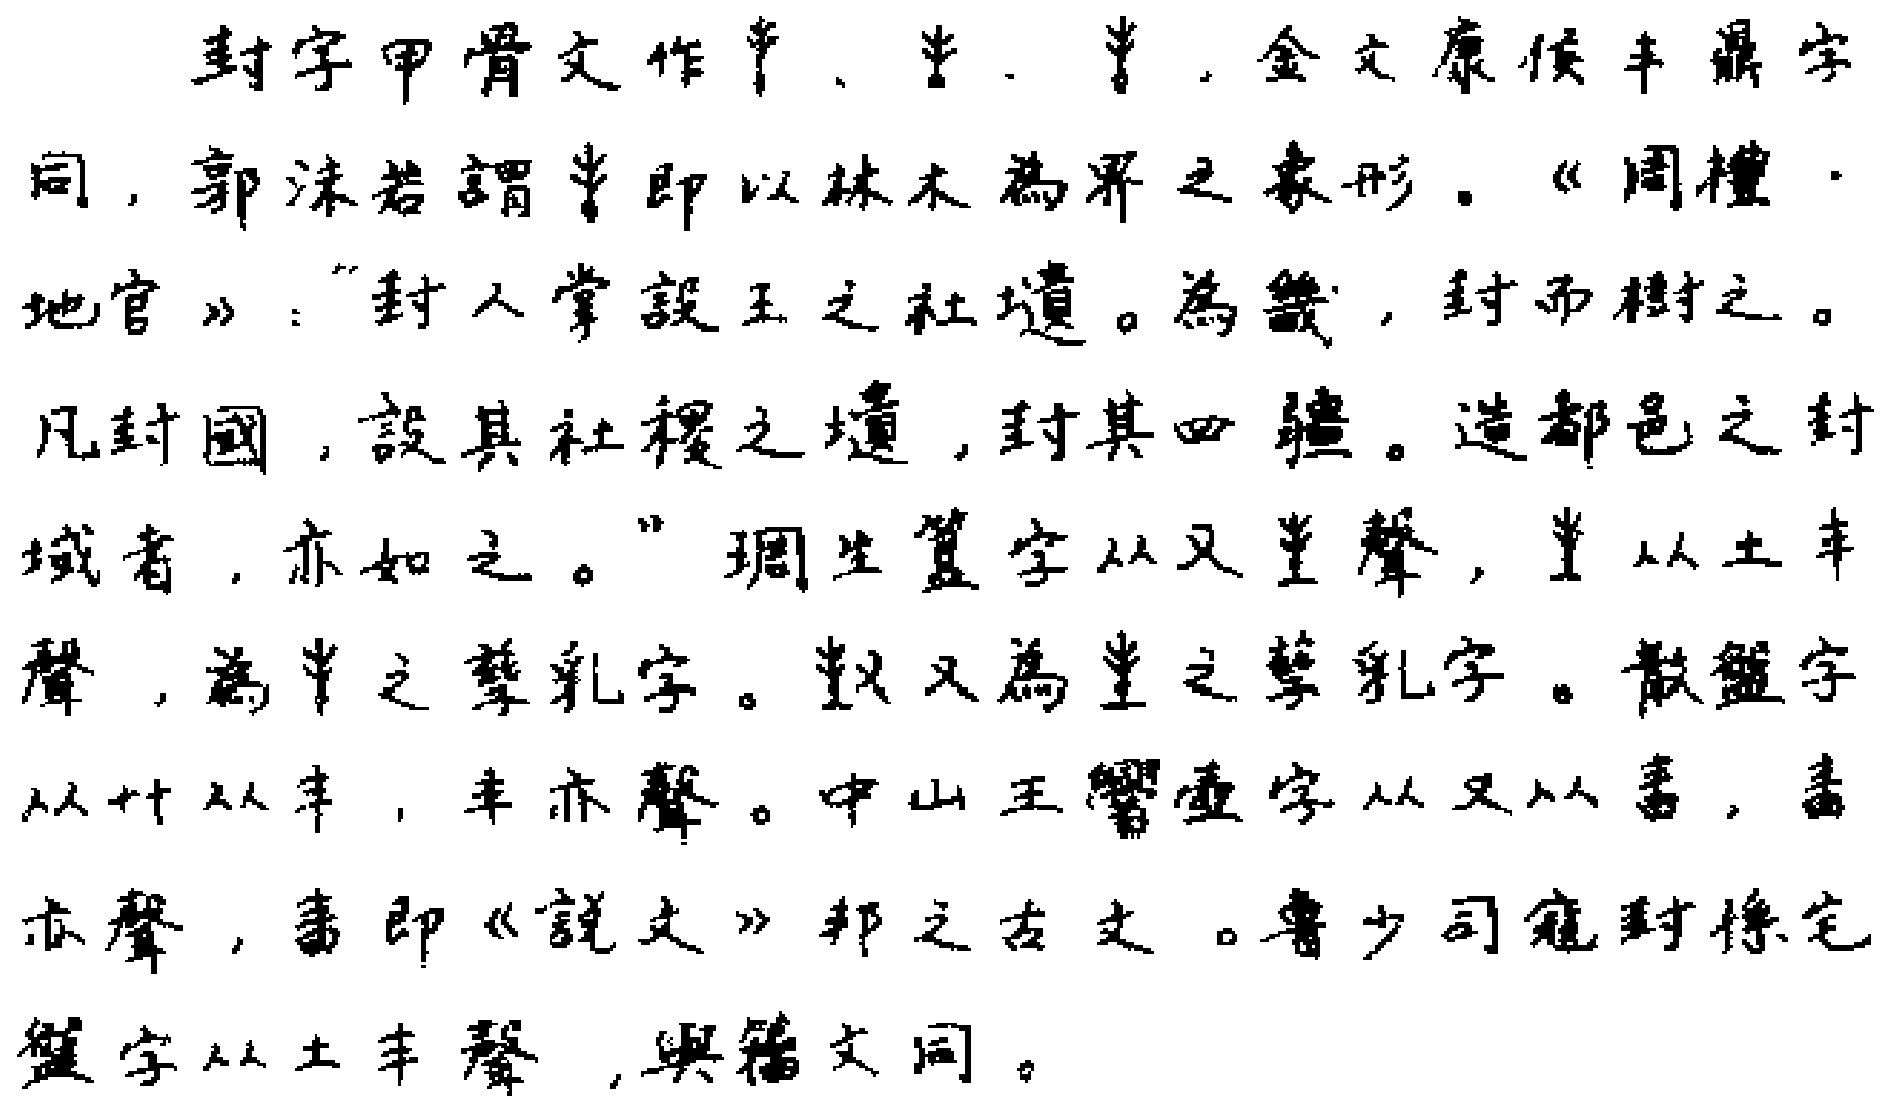 封字甲骨文作、、,金文康侯丰鼎字
同,郭沫若謂即以林木為界之象形。《周禮·
地官》:“封人掌設王之社壝。為畿,封而樹之。
凡封國,設其社稷之壝,封其四疆。造都邑之封
域者,亦如之。”琱生簋字从又聲,从土丰
聲,為之孳乳字。又為之孳乳字。散盤字
从廾从丰,丰亦聲。中山王壺字从又从,
亦聲,即《説文》邦之古文。魯少司寇封孫宅
盤字从土丰聲,與籀文同。